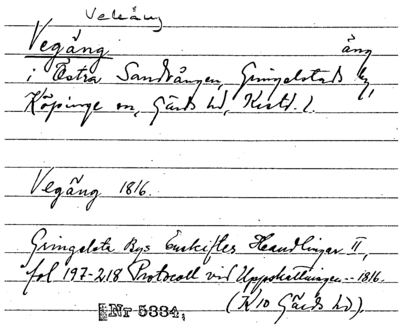 Vekäng
Vegäng äng
i Östra Sandvången, Gringelstads by,
Köpinge sn, Gärds hd, Krist. l.
Vegäng 1816.
Gringelsta Bys Enskiftes Handlingar II,
fol 197-218 Protocoll vid Uppskattningen -- 1816.
(K 10 Gärds hd).
Nr 5334,